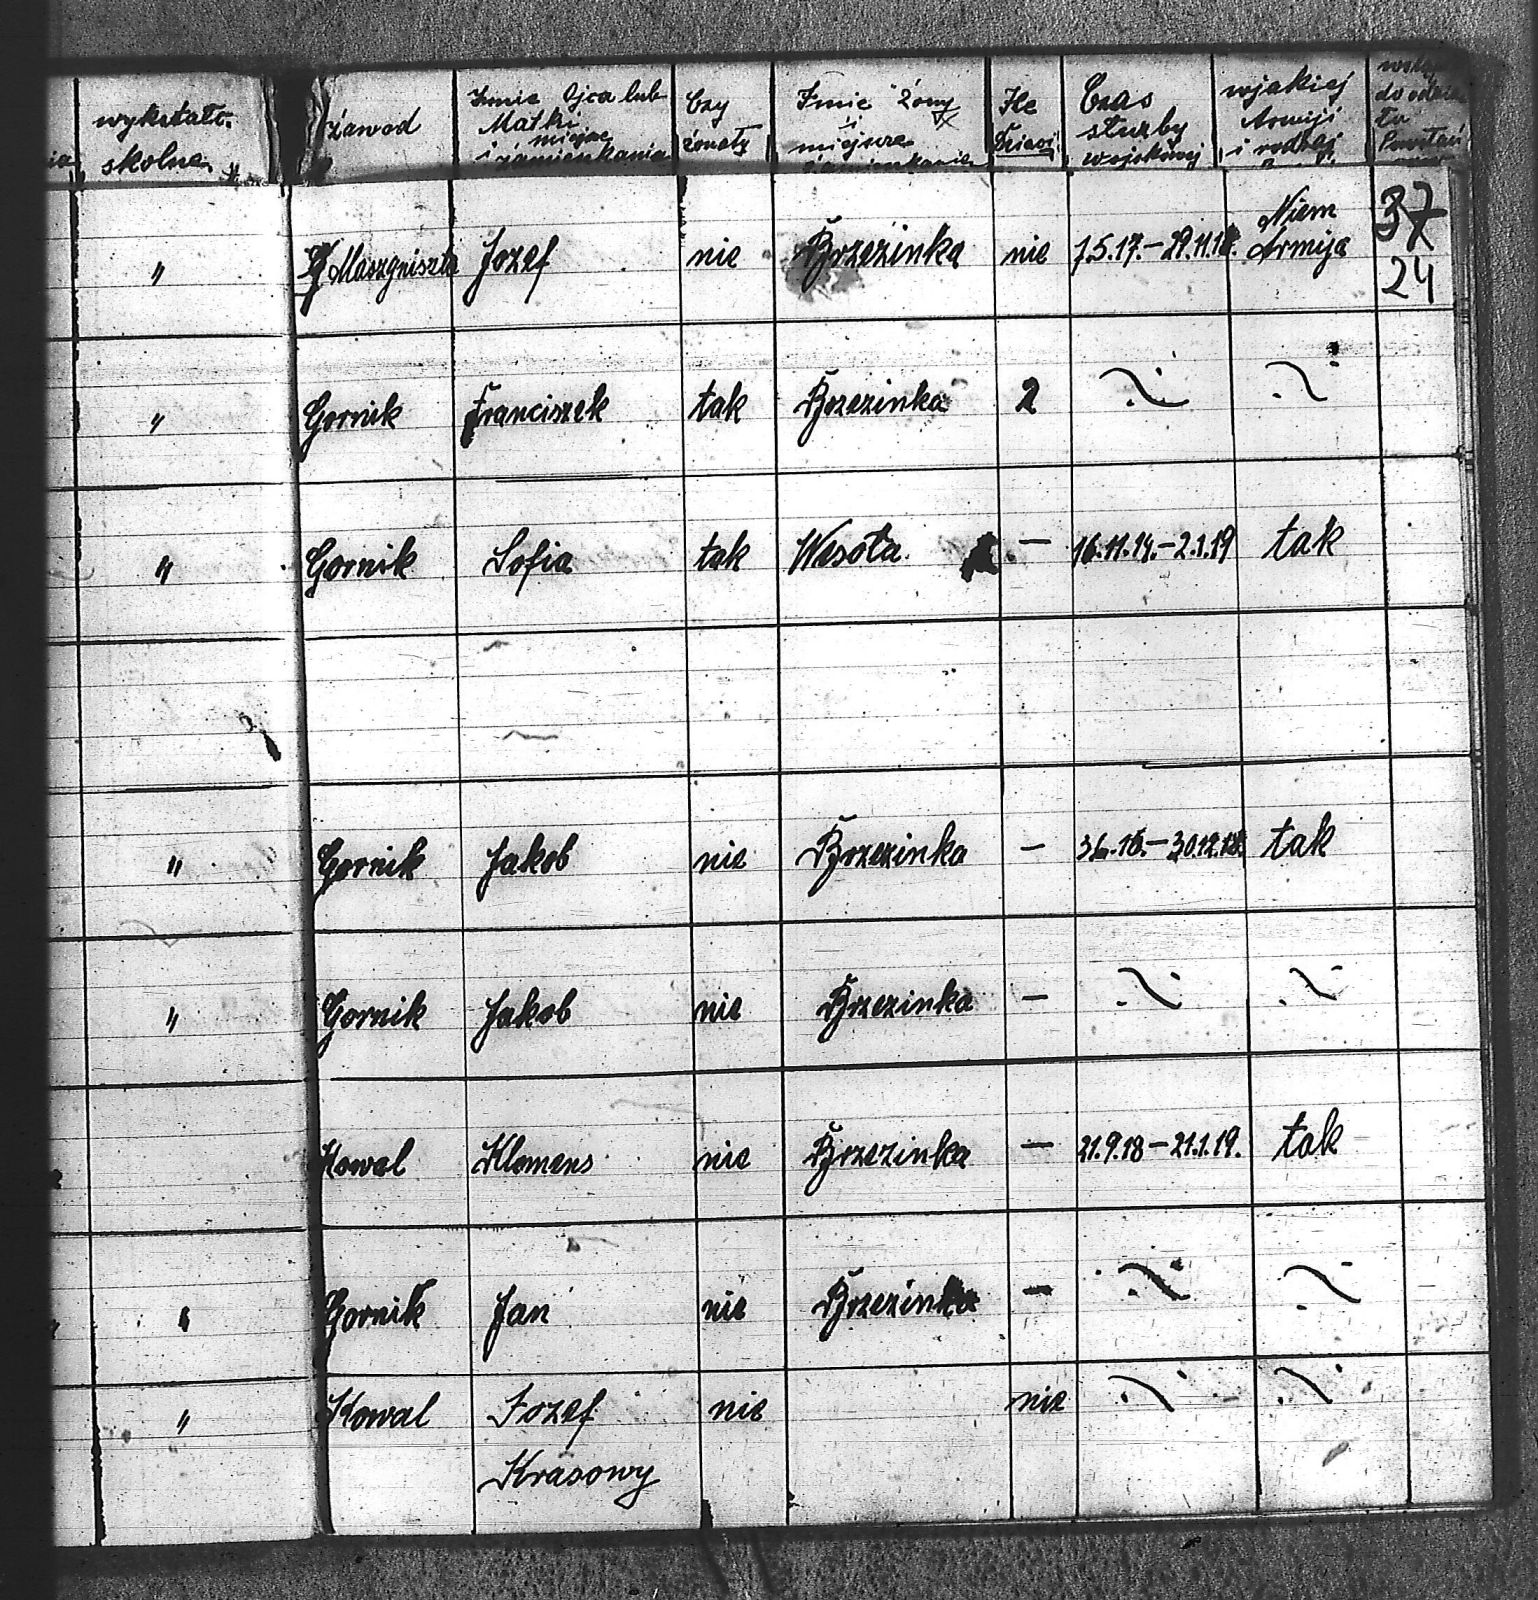 wykstałc. skolne
zawod
Imie Ojca lub Matki i miejsce zamieszkania
Czy żonaty
Imie Żony i miejsce
Ile Dzieci
Czas służby wojskowej
wjakiej Armiji i rodzaj
do
" Maszyniszta Jozef nie Brzezinka nie 7.5.17.–29.11.18. Niem Armija 37
24
" Gornik Franciszek tak Brzezinka 2
" Gornik Sofia tak Wesoła – 16.11.14.–2.1.19 tak
" Gornik Jakob nie Brzezinka – –30.12.18. tak
" Gornik Jakob nie Brzezinka –
Kowal Klemens nie Brzezinka – 21.9.18–21.1.19. tak
" Gornik Jan nie Brzezinka –
" Kowal Jozef nie nie
Krasowy